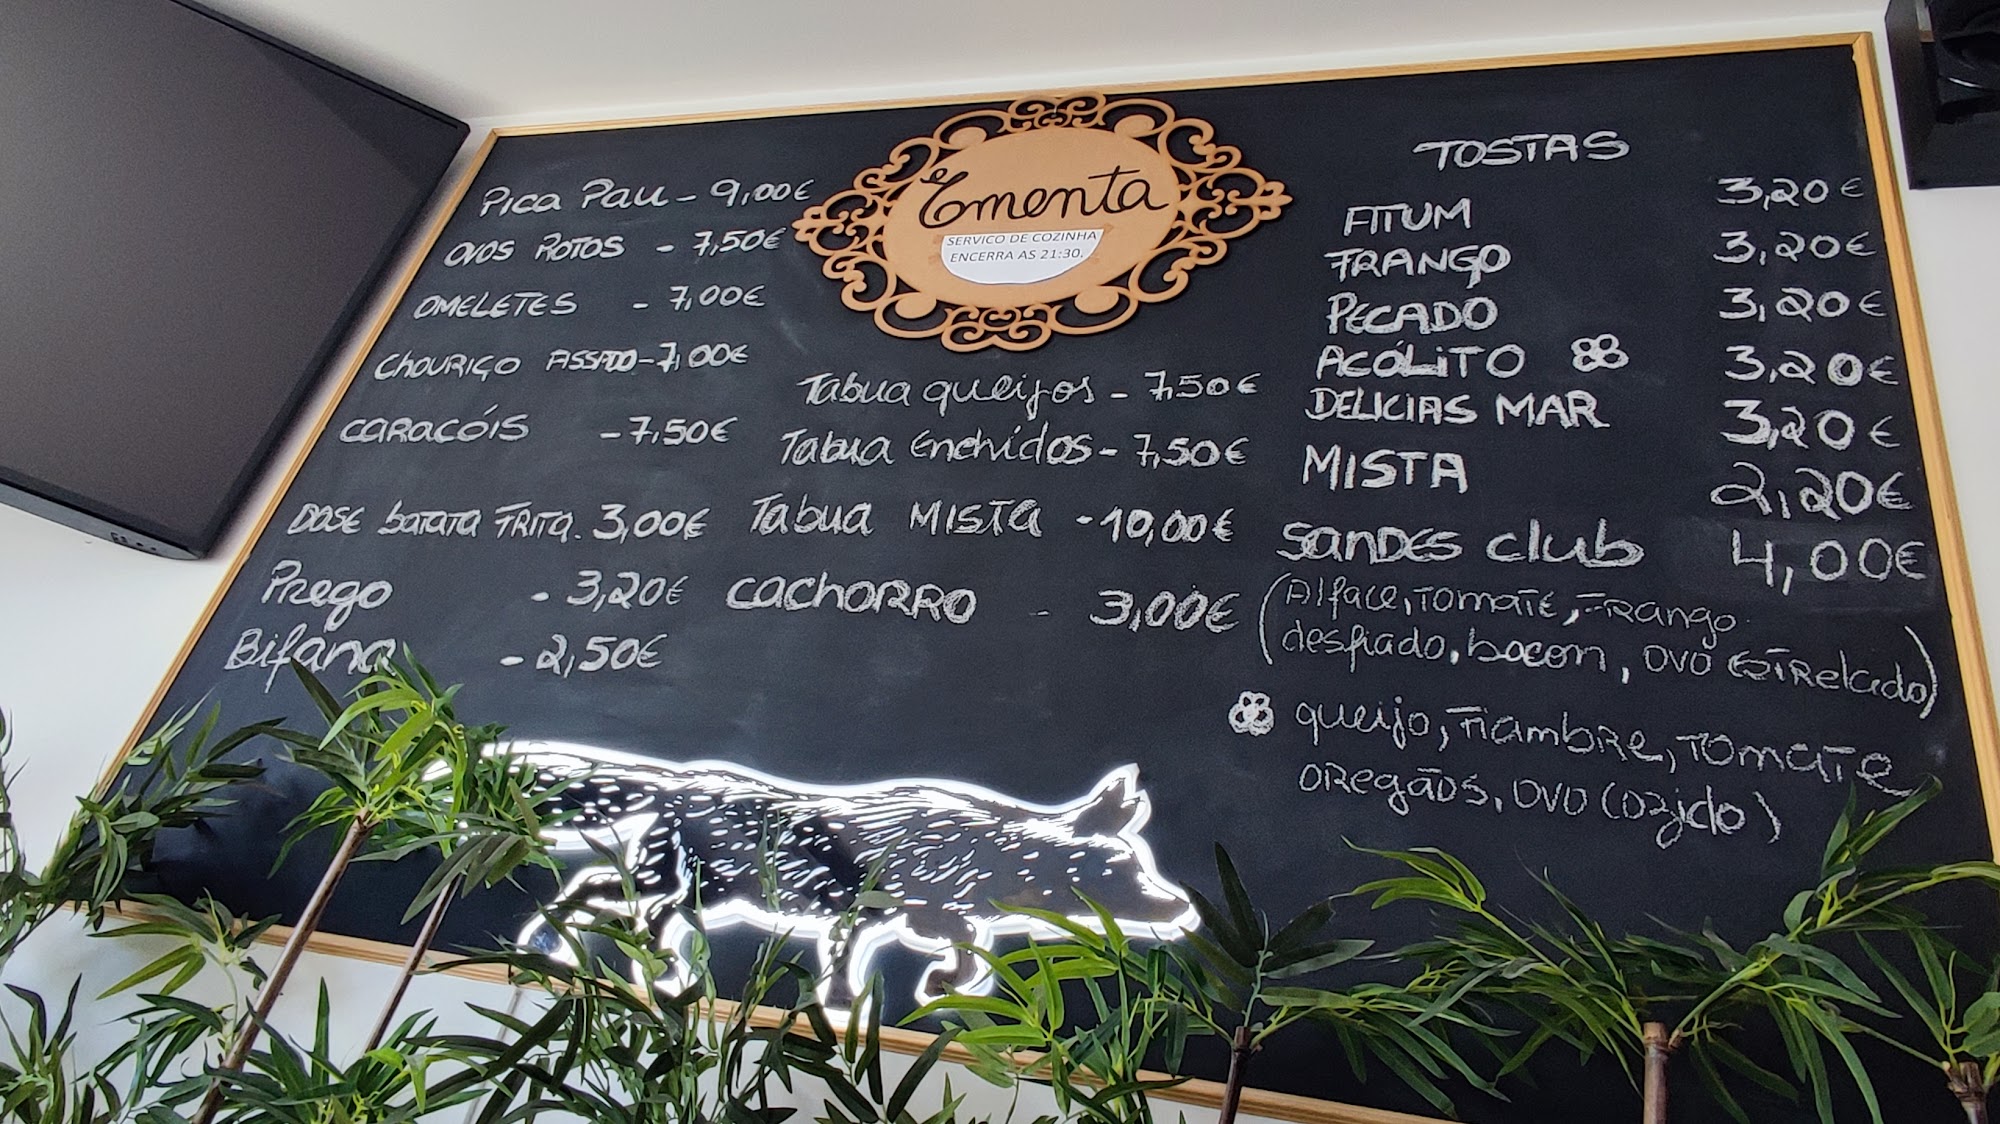 Ementa
SERVICO DE COZINHA
ENCERRA AS 21:30.
Pica Pau - 9,00€
OVOS ROTOS - 7,50€
OMELETES - 7,00€
CHOURIÇO ASSADO - 7,00€
CARACÓIS - 7,50€
DOSE batata FRITA. 3,00€
Prego - 3,20€
Bifana - 2,50€
Tabua queijos - 7,50€
Tabua Enchidos - 7,50€
Tabua MISTA - 10,00€
CACHORRO - 3,00€
TOSTAS
ATUM 3,20€
FRANGO 3,20€
PECADO 3,20€
ACÓLITO 3,20€
DELICIAS MAR 3,20€
MISTA 2,20€
SANDES club 4,00€
(Alface, TOMATE, FRANGO
desfiado, bacon, OVO ESTRELADO)
queijo, Fiambre, TOMATE
OREGÃOS, OVO COZIDO)